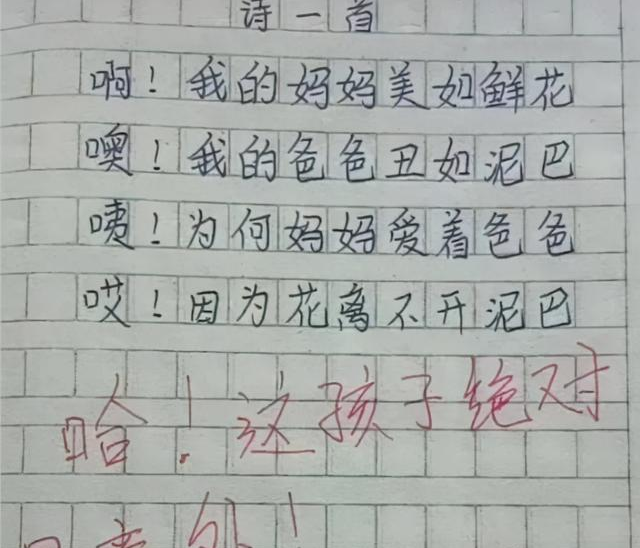 诗一首
啊！我的妈妈美如鲜花
噢！我的爸爸丑如泥巴
咦！为何妈妈爱着爸爸
哎！因为花离不开泥巴
哈！这孩子绝对
意外！